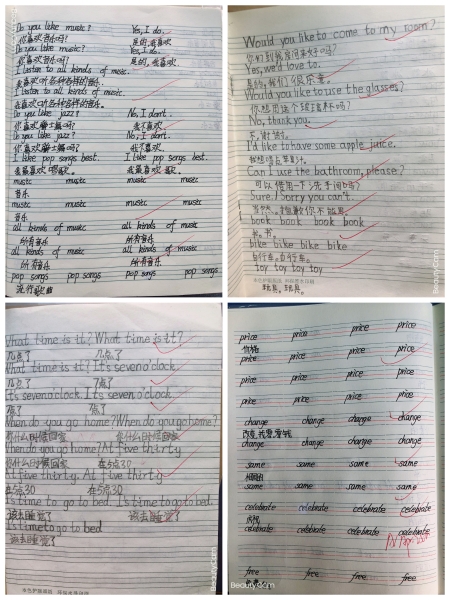 Do you like music? Yes, I do.
你喜欢音乐吗? 是的,我喜欢
Do you like music? Yes, I do.
你喜欢音乐吗? 是的,我喜欢
I listen to all kinds of music.
我喜欢听各种各样的音乐.
I listen to all kinds of music.
我喜欢听各种各样的音乐.
Do you like jazz? No, I don't.
你喜欢爵士乐吗? 我不喜欢
Do you like jazz? No, I don't.
你喜欢爵士乐吗? 我不喜欢
I like pop songs best. I like pop songs best.
我最喜欢 我最喜欢
music music music music
音乐
music music music music
音乐
all kinds of music all kinds of music
所有音乐 所有音乐
all kinds of music all kinds of music
所有音乐 所有音乐
pop songs pop songs pop songs pop songs
流行歌曲
Would you like to come to my room?
你们到我房间来好吗?
Yes, we'd love to.
是的,我们很乐意.
Would you like to use the glasses?
你想用这个玻璃杯不吗?
No, thank you.
不,谢谢.
I'd like to have some apple juice.
我想喝点苹果汁.
Can I use the bathroom, please?
可以借用一下洗手间吗?
Sure. Sorry you can't.
当然. 抱歉你不能.
book book book book
书. 书.
bike bike bike bike
自行车. 自行车.
toy toy toy toy
玩具. 玩具.
What time is it? What time is it?
几点了 几点了
What time is it? It's seven o'clock.
几点了 7点了
It's seven o'clock. It's seven o'clock.
When do you go home? When do you go home?
你什么时候回家 你什么时候回家
When do you go home? At five thirty.
你什么时候回家 在5点30
At five thirty. At five thirty.
在5点30 在5点30
It's time to go to bed. It's time to go to bed.
该去睡觉了 该去睡觉了
It's time to go to bed
该去睡觉了
price price price price
价格
price price price price
price price price price
price price price price
change change change change
改变,
change change change change
same same same same
相同的
same same same same
celebrate celebrate celebrate celebrate
庆祝
celebrate celebrate celebrate celebrate
free free free free
BeautyCam
BeautyCam
BeautyCam